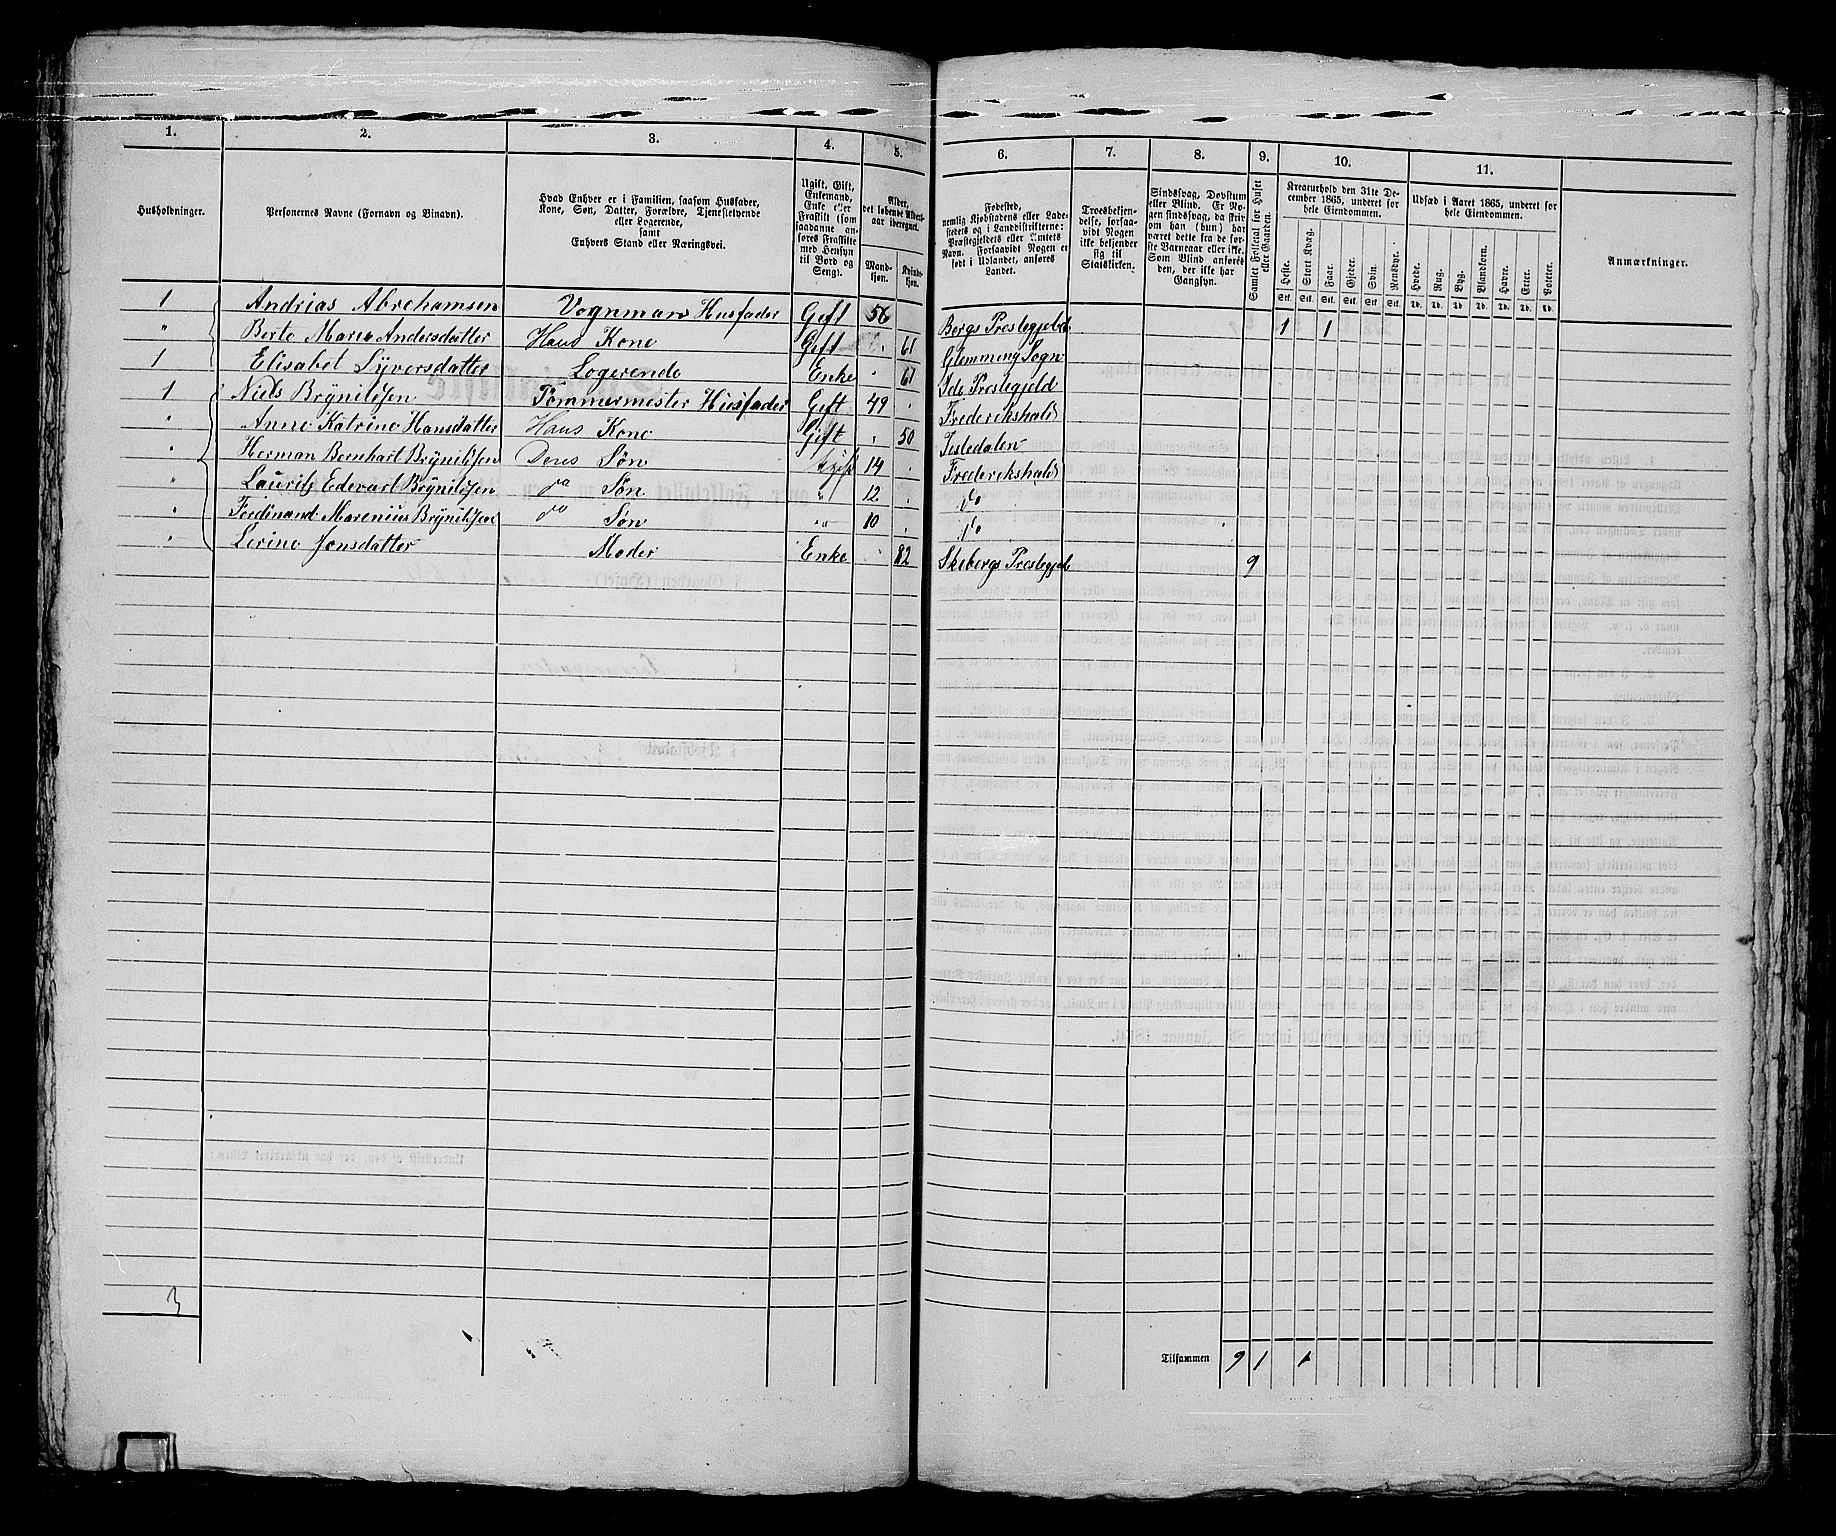 1. 2. 3. 4. 5. 6. 7. 8. 9. 10. 11.
Husholdninger.
Personernes Navne (Fornavn og Binavn).
Hvad Enhver er i Familien, saasom Husfader, Kone, Søn, Datter, Forældre, Tjenestetyende eller Logerende, samt Enhvers Stand eller Næringsvei.
Ugift, Gift, Enkemand, Enke eller Fraskilt (som saadanne anføres Fraskilte med Hensyn til Bord og Seng).
Alder, det løbende Alders-aar iberegnet.
Mand-kjøn. Kvinde-kjøn.
Fødested, nemlig Kjøbstadens eller Ladestedets og i Landdistrikterne: Præstegjeldets eller Amtets Navn. Forsaavidt Nogen er født i Udlandet, anføres Landet.
Troesbekjendelse, forsaavidt Nogen ikke bekjender sig til Statskirken.
Sindssvag, Døvstum eller Blind. Er Nogen sindssvag, da skrives om han (hun) har været dette fra de første Barneaar eller ikke. Som Blind anføres den, der ikke har Gangsyn.
Samlet Folketal for Huset eller Gaarden.
Kreaturhold den 31te December 1865, underet for hele Eiendommen.
Heste. Stort Kvæg. Faar. Gjeder. Svin. Rensdyr.
Stk. Stk. Stk. Stk. Stk. Stk.
Udsæd i Aaret 1865, underet for hele Eiendommen.
Hvede. Rug. Byg. Blandkorn. Havre. Erter. Poteter.
Td. Td. Td. Td. Td. Td. Td.
Anmærkninger.
1 Andrias Abrehamsen Vognman Husfader Gift 56 Bergs Prestegjeld 1 1
" Berte Marie Andersdatter Hans Kone Gift 61 Glemming Sogn
1 Elisabet Syversdatter Logerende Enke 61 Ide Prestegjeld
1 Niels Brynildsen Tømmermester Husfader Gift 49 Frederikshald
" Anne Katrine Hansdatter Hans Kone Gift 50 Testedalen
" Herman Bernhart Brynildsen Deres Søn Ugift 14 Frederikshald
" Lauritz Edevart Brynildsen do Søn " 12 do
" Ferdinand Marenius Brynildsen do Søn " 10 do
" Lerine Jonsdatter Moder Enke 82 Skebergs Prestegjeld 9
3
Tilsammen 9 1 1